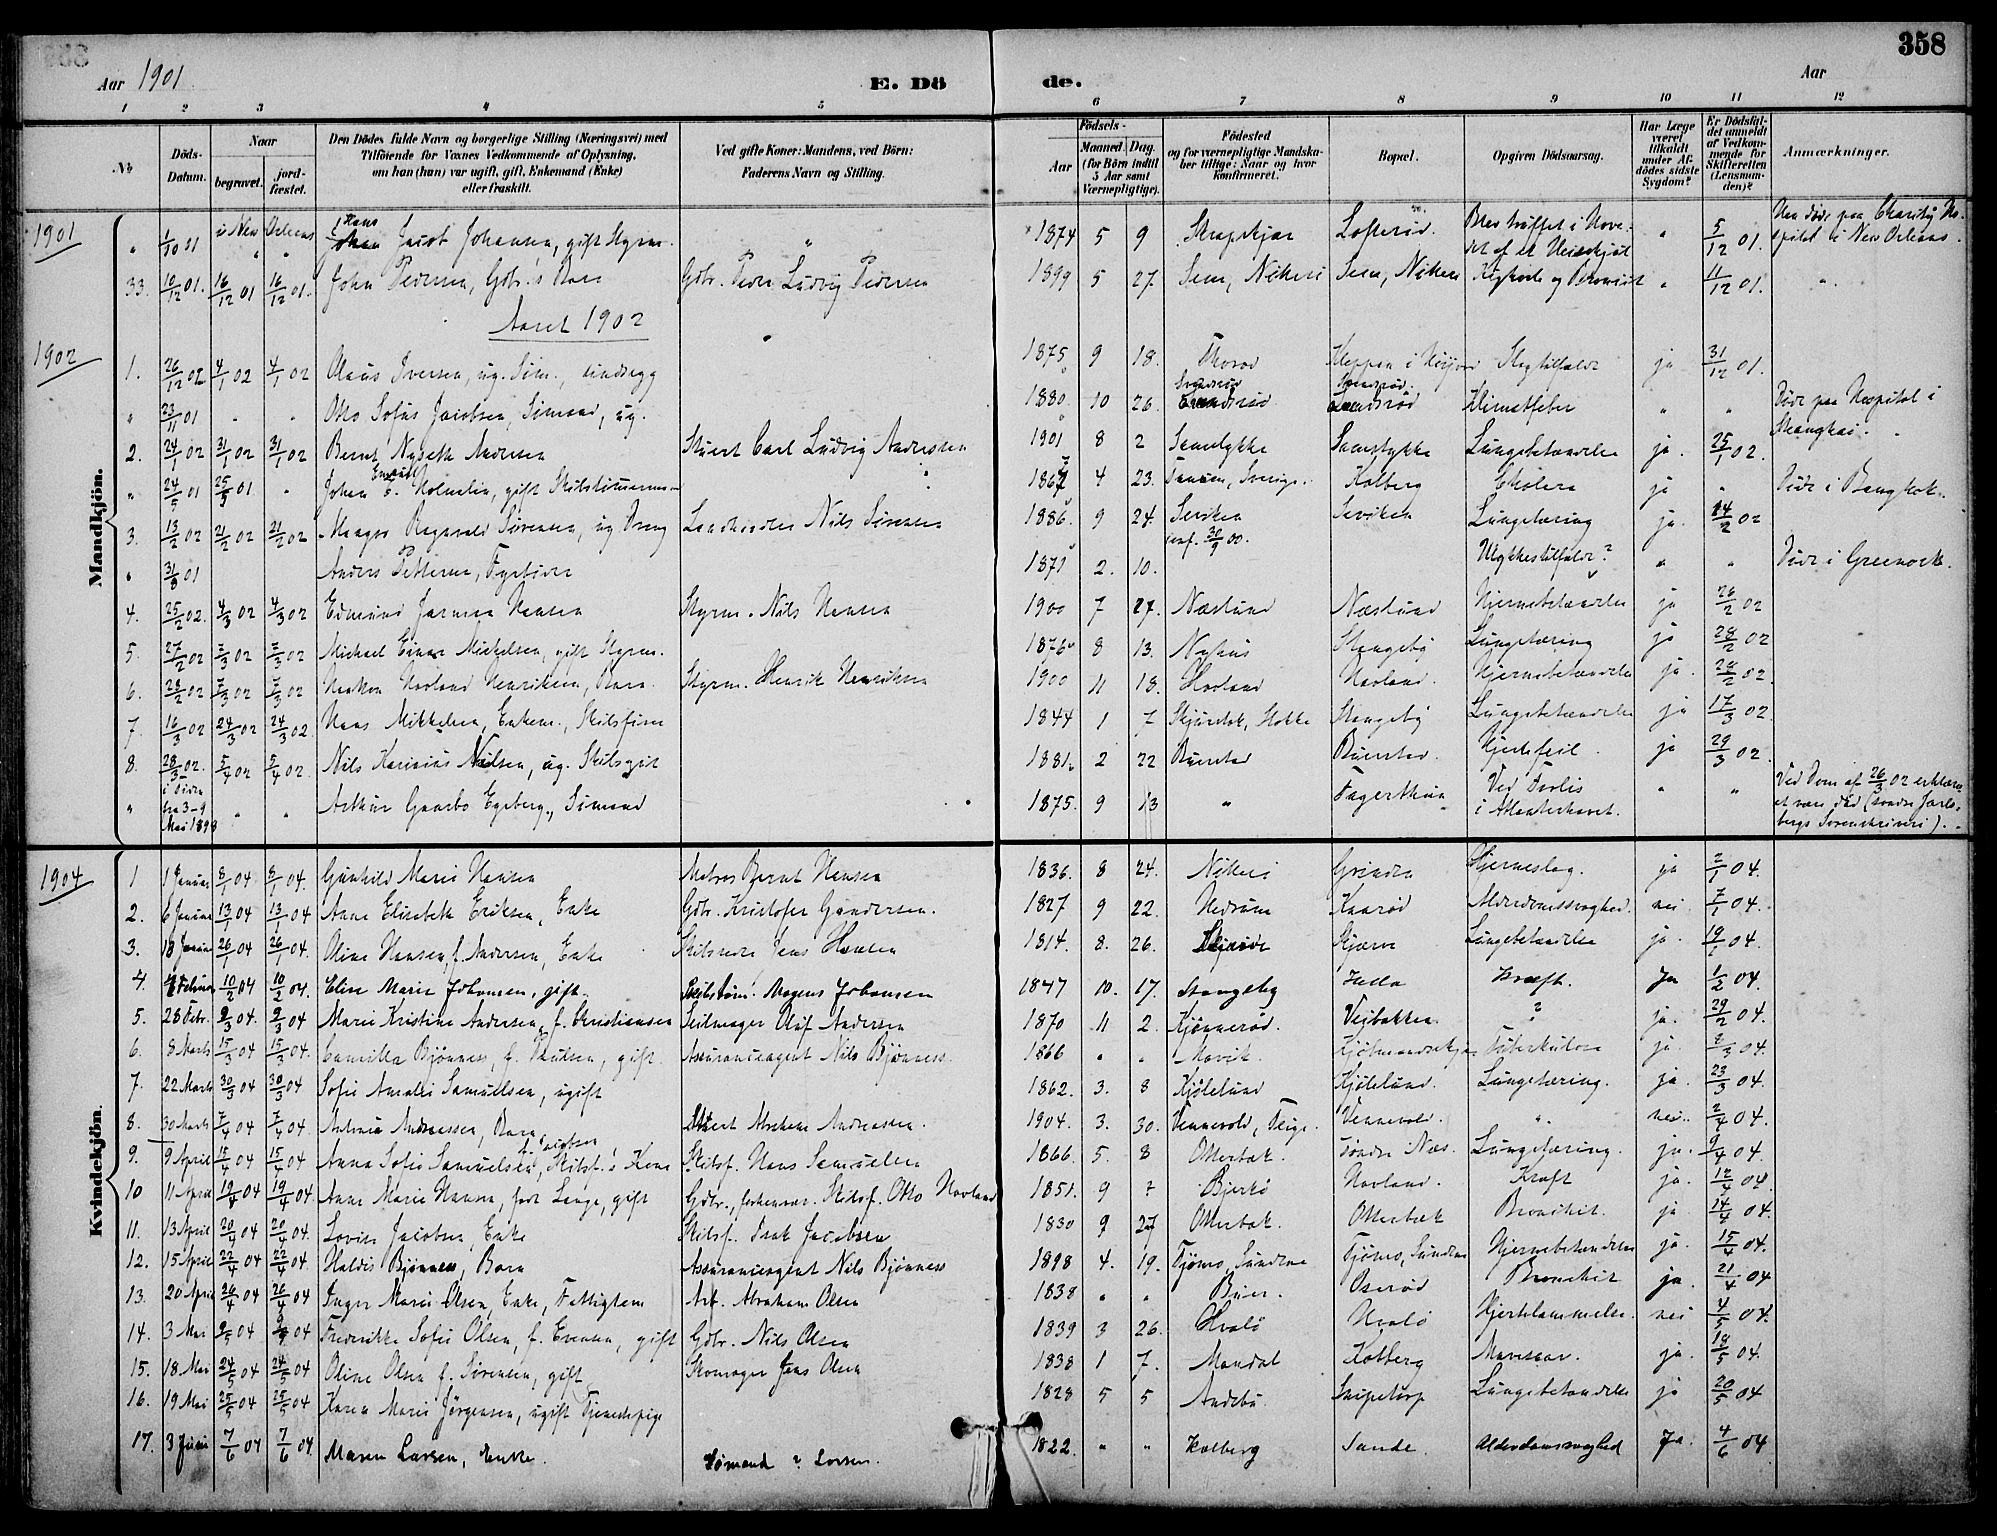 358
Aar 1901
E. Döde.
Aar
1 2 3 4 5 6 7 8 9 10 11 12
No
Döds-Datum.
Naar
begravet.
jord-fæstet.
Den Dödes fulde Navn og borgerlige Stilling (Næringsvei) med
Tilföiende for Voxnes Vedkommende af Oplysning,
om han (hun) var ugift, gift, Enkemand (Enke)
eller fraskilt.
Ved gifte Koner: Mandens, ved Börn:
Faderens Navn og Stilling.
Födsels-
Aar
Maaned. Dag.
(for Börn indtil
5 Aar samt
Værnepligtige).
Födested
og for værnepligtige Mandska-
ber tillige: Naar og hvor
Konfirmeret.
Bopæl.
Opgiven Dödsaarsag.
Har Læge
været
tilkaldt
under Af-
dödes sidste
Sygdom?
Er Dödsfal-
det anmeldt
af Vedkom-
mende for
Skifteretten
(Lensman-
den)?
Anmærkninger.
Mandkjön.
1901
" 1/10 01 i New Orleans Hans Jacob Johansen, gift Styrm. " 1874 5 9 Lofterød Blev truffet i Hove- " 5/12 01. Han døde paa Charity Ho-
det af et spital i New Orleans.
33. 10/12 01. 16/12 01 16/12 01. John Pedersen, Gdbr.'s Barn Gdbr. Peder Ludvig Pedersen 1899 5 27. Sem, Nøtterø Sem, Nøtterø Kighoste og " 11/12 01. "
Aaret 1902
1902
1. 26/12 02 4/1 02 4/1 02 Olaus Iversen, ug. Søm., 1875 9 18. Thorød Slagtilfælde ja 31/12 01.
" 23/11 01 " " Otto Sofus Jacobsen, Sømand, ug. 1880 10 26. Klimatfeber " " Døde paa Hospital i
Shanghai.
2. 24/1 02 31/1 02 31/1 02 Bernt Andersen Stuert Carl Ludvig Anderssen 1901 8 2 Lungebetændelse ja. 25/1 02.
" 24/5 01 25/5 01 " Johan Emanuel gift 4 23. Sverige. Kolberg Cholera ja " Døde i Bangkok.
3. 13/2 02 21/2 02 21/2 02 Ragnvald Sørensen, ug Dreng Landhandler Nils Sørensen 1886. 9 24. Lungetæring ja. 14/2 02
conf. 30/9 00.
" 31/8 01 Anders Pettersen, Fyrbøder 1871 2. 10. Ulykkestilfælde? " " Døde i Greenock.
4. 25/2 02. 4/3 02 4/3 02 Edmund Hansen Styrm. Nils Hansen 1900 7 27. Næslund Næslund Hjernebetændelse ja 26/2 02
5. 27/2 02 7/3 02 7/3 02 Michael Einar Mickelsen, gift Styrm. 1876 8 13. Nyhus Stangeby Lungetæring ja 28/2 02
6. 28/2 02 7/3 02 7/3 02 Haakon Havland Henriksen, Barn. Styrm. Henrik Henriksen 1900 11 18. Hovland Havland. Hjernebetændelse ja. 28/2 02.
7. 16/3 02 24/3 02 24/3 02. Hans Mikkelsen, Enkem., Skibsfører 1844 1 7 Stokke Stangeby Lungebetændelse ja 17/3 02.
8. 28/3 02. 5/4 02 5/4 02. Nils Karinius Nilsen, ug. Skibsgut 1881 2 22 Buerstad Buerstad Hjertefeil. ja 29/3 02.
" i Tiden " " Arthur Egeberg, Sømand 1875. 9 13 " Ved Forlis " " Ved Dom af 26/3 02 erklæret
fra 3-9 i Atlanterhavet. at være død (søndre Jarls-
Mai 1898 bergs Sorenskriveri).
Kvindekjön.
1904
1 1 Januar 8/1 04 8/1 04. Gunhild Marie Hansen Matros Bernt Hansen 1836. 8 24. Nøtterø Grindra Hjerneslag. ja 2/1 04.
2. 6 Januar 13/1 04 13/1 04 Anne Elisebeth Eriksen, Enke Gdbr. Kristofer Gundersen. 1827 9 22. Hedrum Kaarød Alderdomssvaghed. nei 7/1 04.
3. 18 Januar 26/1 04 26/1 04. Oline Hansen, f. Andersen, Enke Jens Hansen 1814. 8. 26. Lungebetændelse ja. 19/1 04.
4. Februar 10/2 04 10/2 04. Elise Marie Johansen, gift. Skibstøm. Magnus Johansen 1847 10. 17. Stangeby Kræft. Ja 1/2 04.
5. 28 Febr. 9/3 04 9/3 04 Marie Kristine Andersen, f. Christiansen Seilmager Oluf Andersen 1870 11 2. Kjønnerød. Veibakken. ? ja. 29/2 04.
6. 8 Marts 15/3 04 15/3 04. Camilla Bjønnes, f. Paulsen, gift. Assuranceagent Nils Bjønness. 1866 " " Tuberkulose ja. 04.
7. 22 Marts 30/3 04 30/3 04 Sofie Amalie Samuelsen, ugift 1862. 3. 8 Kjølelund Kjølelund. Lungetæring. ja. 23/3 04.
8. 30 Marts 7/4 04 7/4 04 Antonie Andreassen, Barn Stuert Abraham Andreassen. 1904. 3. 30. Vennevold. " nei. 2/4 04.
9. 9 April 15/4 04 15/4 04 Anna Sofie Samuelsen f. Jacobsen, Skibsf.'s Kone Skibsf. Hans Samuelsen 1866. 5. 8 Otterbæk. Søndre Næs. Lungetæring. ja. 9/4 04.
10 11 April 19/4 04 19/4 04 Anne Marie Hansen, født Lange, gift Gdbr., forhenvær. Skibsf. Otto Havland 1851. 9 7 Bjerkø Havland. Kræft ja. 12/4 04.
11. 13 April 20/4 04 20/4 04. Lovise Jacobsen, Enke Skibsf. Isak Jacobsen 1830 9 27 Otterbæk. Otterbæk Bronchit. ja 14/4 04.
12. 15 April 22/4 04 22/4 04. Haldis Bjønnes, Barn Assuranceagent Nils Bjønness 1898 4. 19. Tjømø, Sundene Tjømø, Sundene Hjernebetændelse ja. 15/4 04.
13. 20 April 26/4 04 26/4 04 Inger Marie Olsen, Enke, Fattiglem Arb. Abraham Olsen 1838 " " Buer. Oserød Bronchit ja. 21/4 04
14. 3 Mai 9/5 04 9/5 04 Fredrikke Sofie Olsen, f. Evensen, gift Gdbr. Nils Olsen 1839 3 26. Hvalø Hvalø Hjertelammelse. nei 4/5 04.
15. 18 Mai 24/5 04 24/5 04 Oline Olsen f. Sørensen, gift Skomager Jens Olsen 1838 1 7. Mandal Kolberg ja. 18/5 04.
16. 19 Mai 25/5 04 25/5 04 Karen Marie Jørgensen, ugift Tjenestepige 1828 5 5 Andebu Snipetorp Lungebetændelse ja 20/5 04
17. 3 Juni 7/6 04 7/6 04. Maren Larsen, Enke. Sømand ? Larsen. 1822. " " Kolberg Sande. Alderdomssvaghed Ja. 4/6 04